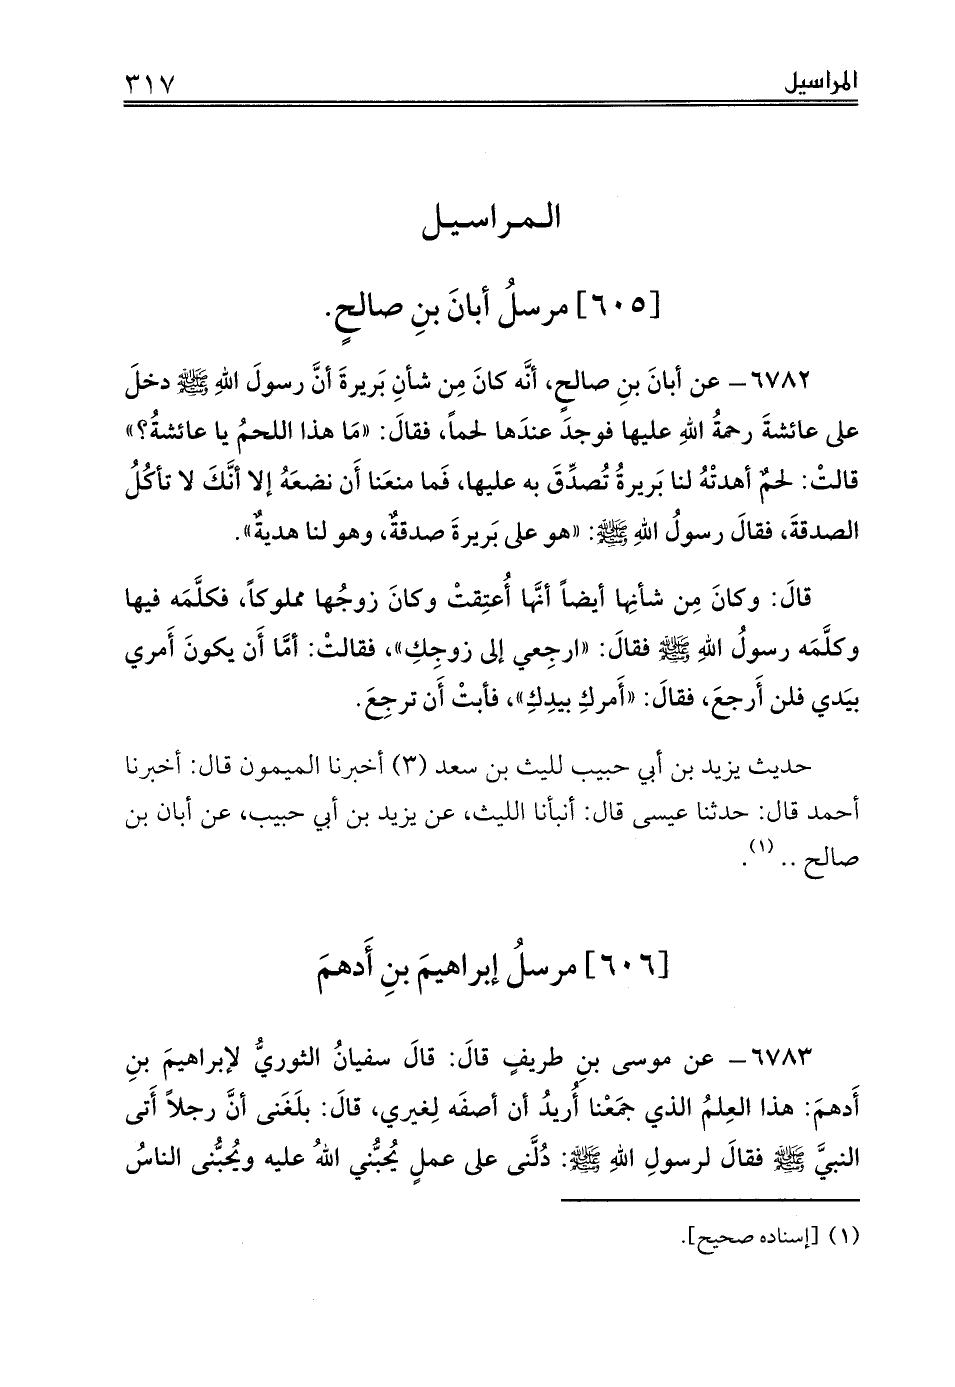 المراسيل ٣١٧
المراسيل
[٦٠٥] مرسلُ أبانَ بنِ صالحٍ.
٦٧٨٢– عن أبانَ بنِ صالحٍ، أنَّه كانَ مِن شأنِ بَريرةَ أنَّ رسولَ اللهِ ﷺ دخلَ
على عائشةَ رحمةُ اللهِ عليها فوجدَ عندَها لحماً، فقالَ: «مَا هذا اللحمُ يا عائشةُ؟»
قالتْ: لحمٌ أهدتْهُ لنا بَريرةُ تُصدِّقَ به عليها، فَما منعَنا أَن نضعَهُ إلا أنَّكَ لا تأكُلُ
الصدقةَ، فقالَ رسولُ اللهِ ﷺ: «هو على بَريرةَ صدقةٌ، وهو لنا هديةٌ».
قالَ: وكانَ مِن شأنِها أيضاً أنَّها أُعتِقتْ وكانَ زوجُها مملوكاً، فكلَّمَه فيها
وكلَّمَه رسولُ اللهِ ﷺ فقالَ: «ارجِعي إلى زوجِكِ»، فقالتْ: أمَّا أَن يكونَ أَمري
بيَدي فلن أَرجعَ، فقالَ: «أَمركِ بيدِكِ»، فأبتْ أَن ترجِعَ.
حديث يزيد بن أبي حبيب لليث بن سعد (٣) أخبرنا الميمون قال: أخبرنا
أحمد قال: حدثنا عيسى قال: أنبأنا الليث، عن يزيد بن أبي حبيب، عن أبان بن
صالح .. (١).
[٦٠٦] مرسلُ إبراهيمَ بنِ أَدهمَ
٦٧٨٣– عن موسى بنِ طريفٍ قالَ: قالَ سفيانُ الثوريُّ لإبراهيمَ بنِ
أَدهمَ: هذا العِلمُ الذي جمَعْنا أُريدُ أن أصفَه لِغيري، قالَ: بلَغَني أنَّ رجلاً أتى
النبيَّ ﷺ فقالَ لرسولِ اللهِ ﷺ: دُلَّني على عملٍ يُحبُّني اللهُ عليه ويُحبُّني الناسُ
(١) [إسناده صحيح].